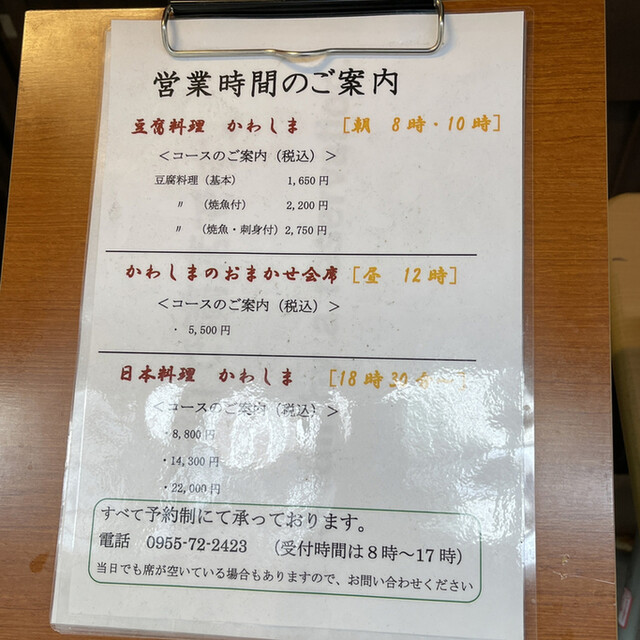 営業時間のご案内
豆腐料理 かわしま [朝 8時・10時]
＜コースのご案内（税込）＞
豆腐料理（基本） 1,650円
〃 （焼魚付） 2,200円
〃 （焼魚・刺身付）2,750円
かわしまのおまかせ会席[昼 12時]
＜コースのご案内（税込）＞
・ 5,500円
日本料理 かわしま [18時30分～]
＜コースのご案内（税込）＞
・8,800円
・14,300円
・22,000円
すべて予約制にて承っております。
電話 0955-72-2423 （受付時間は8時～17時）
当日でも席が空いている場合もありますので、お問い合わせください